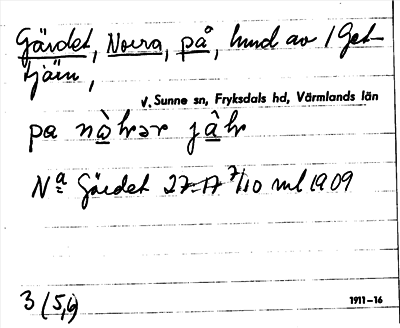 Gärdet, Norra, på, hmd av 1 Get-
tjärn,
V. Sunne sn, Fryksdals hd, Värmlands län
pa nò
Na Gärdet 27-17 7/10 ml 1909
3 (5,6)
1911-16